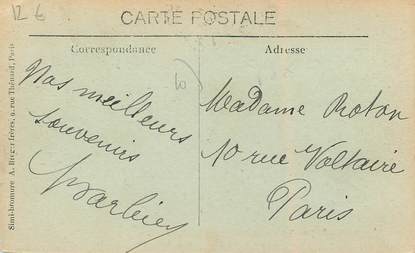 12 6
CARTE POSTALE
Correspondance
Adresse
Nos meilleurs
souvenirs
Madame Proton
10 rue Voltaire
Paris
Simi-bromure A. Breger frères, 9, rue Thénard, Paris